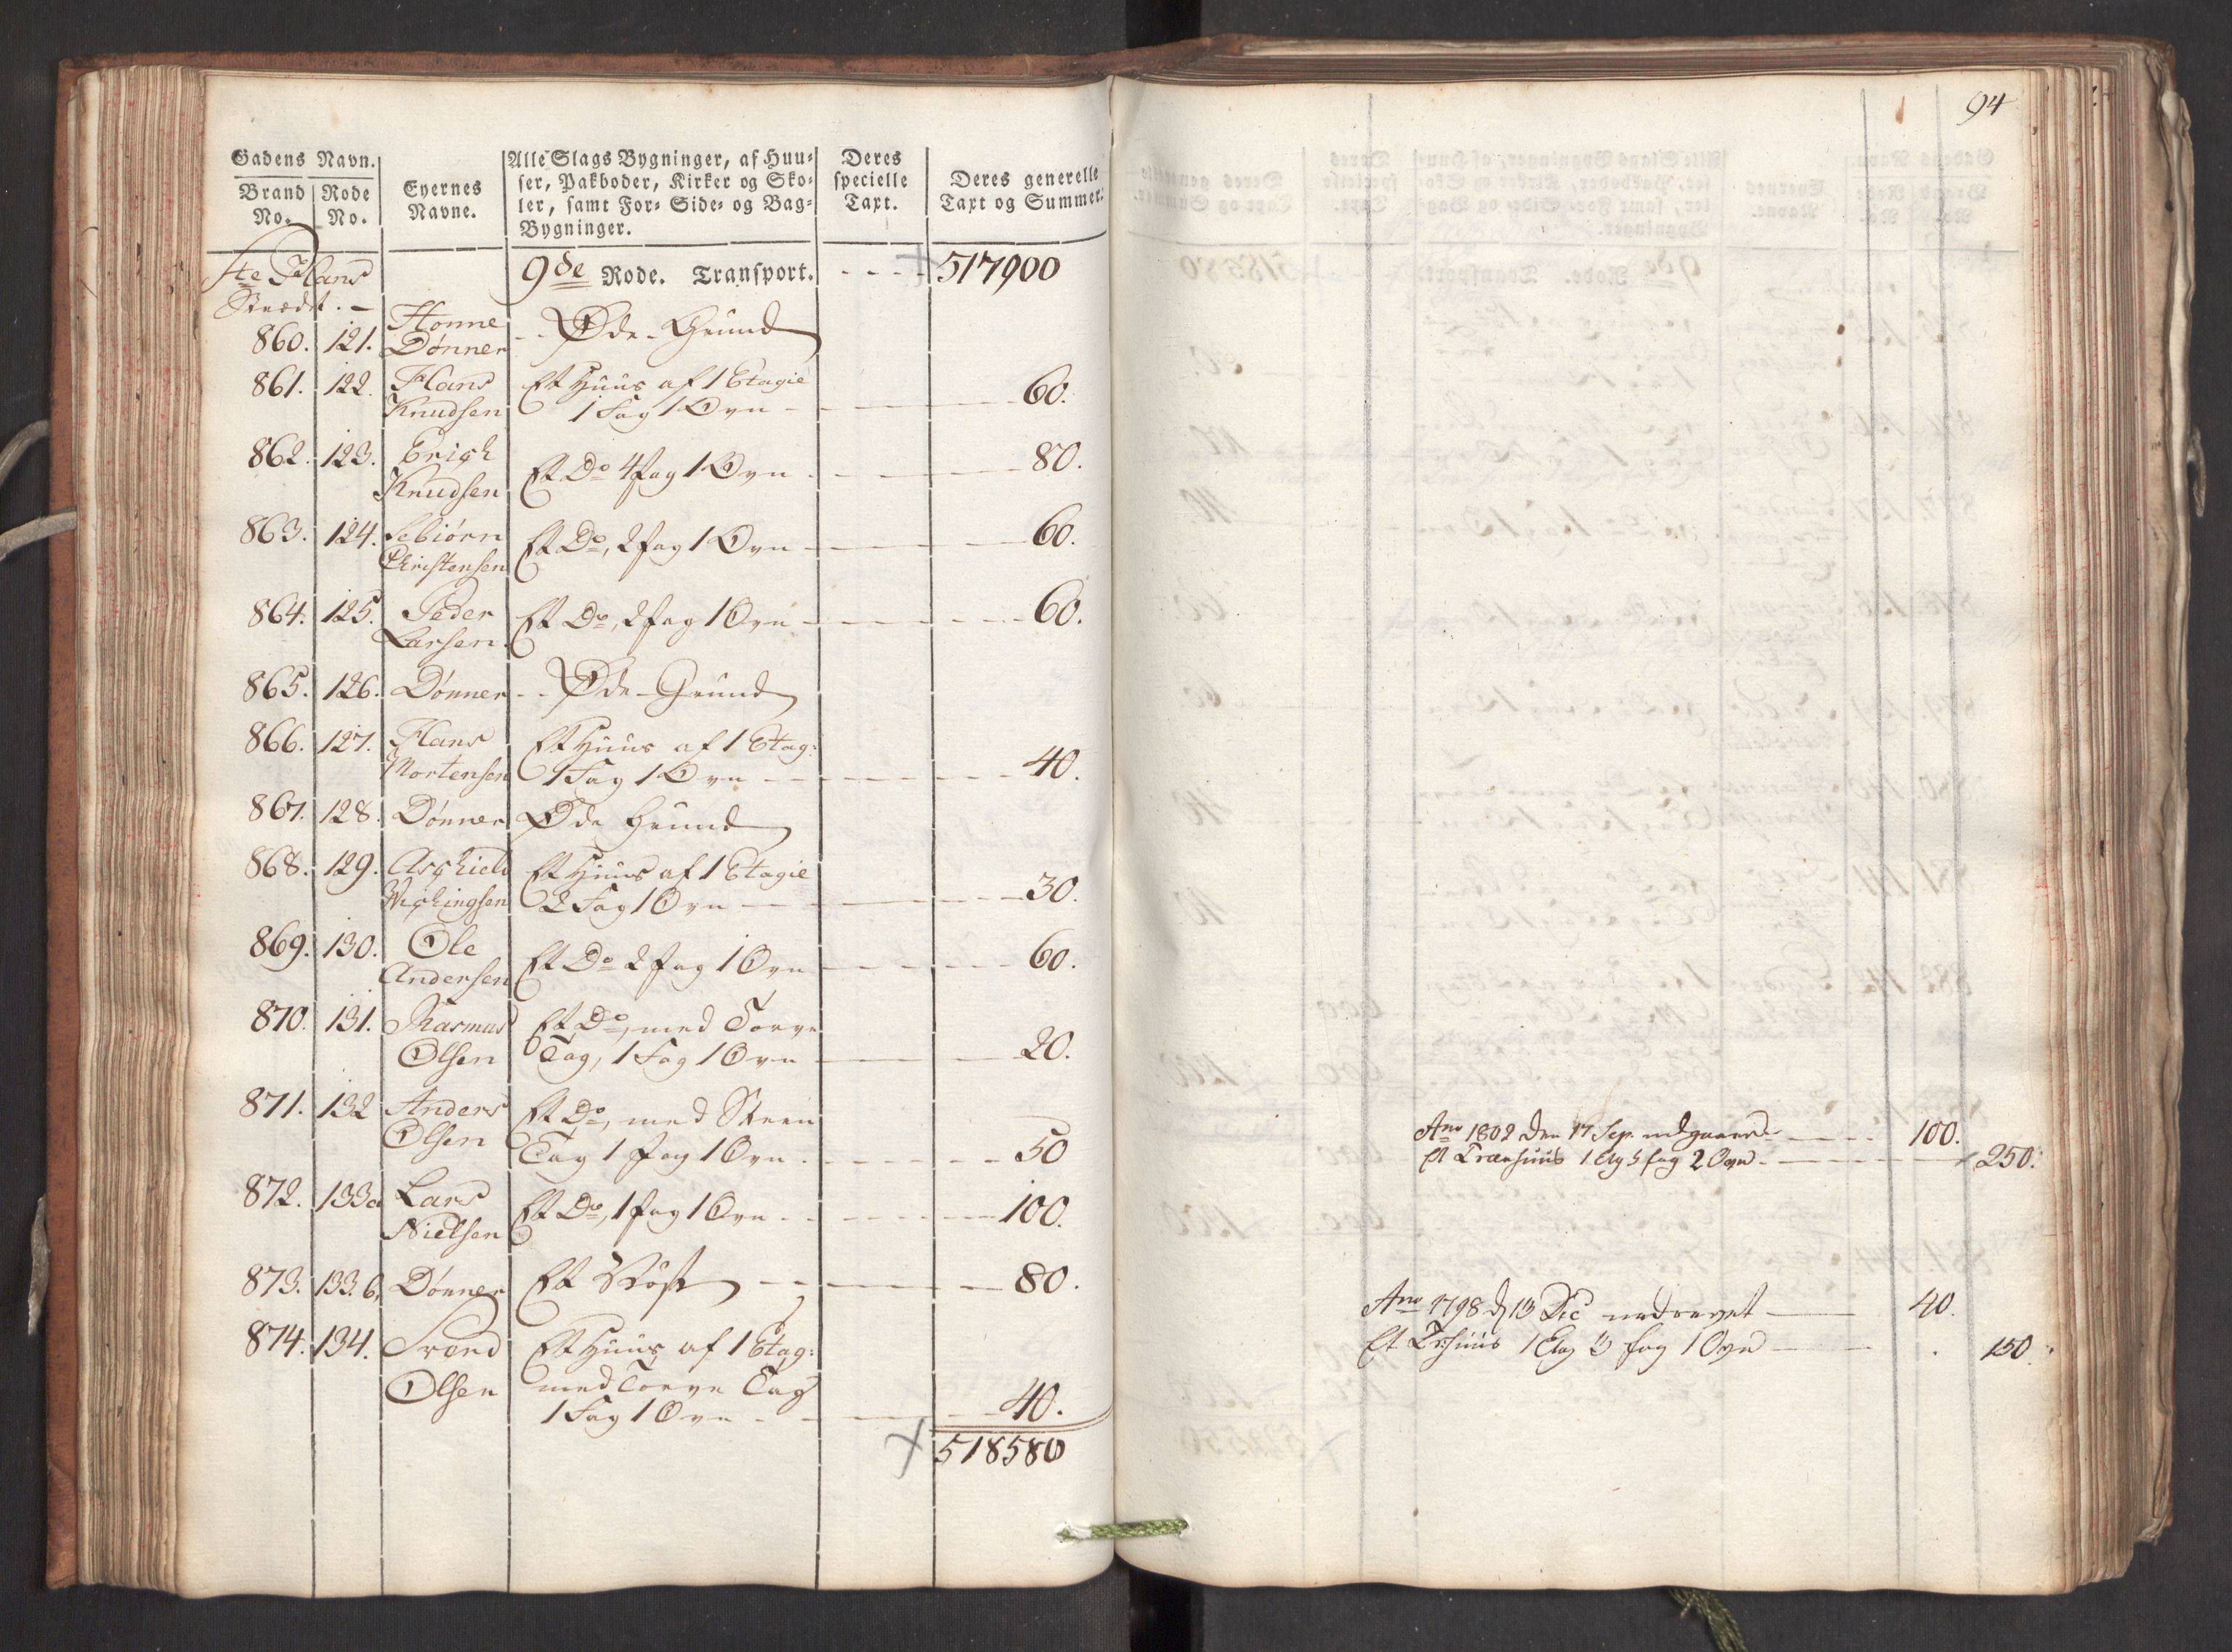 Gadens Navn.
Brand No. Rode No. Eyernes Navne. Alle Slags Bygninger, af Huu-
ser, Pakboder, Kirker og Sko-
ler, samt For- Side- og Bag-
Bygninger. Deres specielle Taxt. Deres generelle Taxt og Summer.
Ste Hans
Strædet. 9de Rode. Transport. 517900
860. 121. Dønner Øde-Grund
861. 122. Hans Et Huus af 1 Etagie
Knudsen 1 Fag 1 Ovn 60.
862. 123. Erich
Knudsen Et Do 4 fag 1 Ovn 80.
863. 124. Sebiørn
Christensen Et Do, 2 fag 1 Ovn 60.
864. 125. Peder
Larsen Et Do, 2 fag 1 Ovn 60.
865. 126. Dønner Øde-Grund
866. 127. Hans Et Huus af 1 Etag:
Mortensen 1 Fag 1 Ovn 40.
867. 128. Dønner Øde Grund
868. 129. Aschield Et Huus af 1 Etagie
Wichingsen 2 Fag 1 Ovn 30.
869. 130. Ole
Andersen Et Do 2 fag 1 Ovn 60.
870. 131. Rasmus Et Do, med Torve
Olsen Tag, 1 Fag 1 Ovn 20.
871. 132 Anders Et Do, med Steen
Olsen Tag 1 fag 1 Ovn 50
872. 133a Lars
Nielsen Et Do, 1 fag 1 Ovn 100.
873. 133.b. Dønner Et 80.
874. 134. Svend Et Huus af 1 Etag:
Olsen med Torve Tag
1 Fag 1 Ovn 40.
518580
94
Ano 1802 den 17 Sep. udgaaer 100.
Et Træehuus 1 Etg 5 fag 2 Ovn 250.
Ano 1798 d 13 Dec nedrevet 40.
Et Trhuus 1 Etag 3 fag 1 Ovn 150.